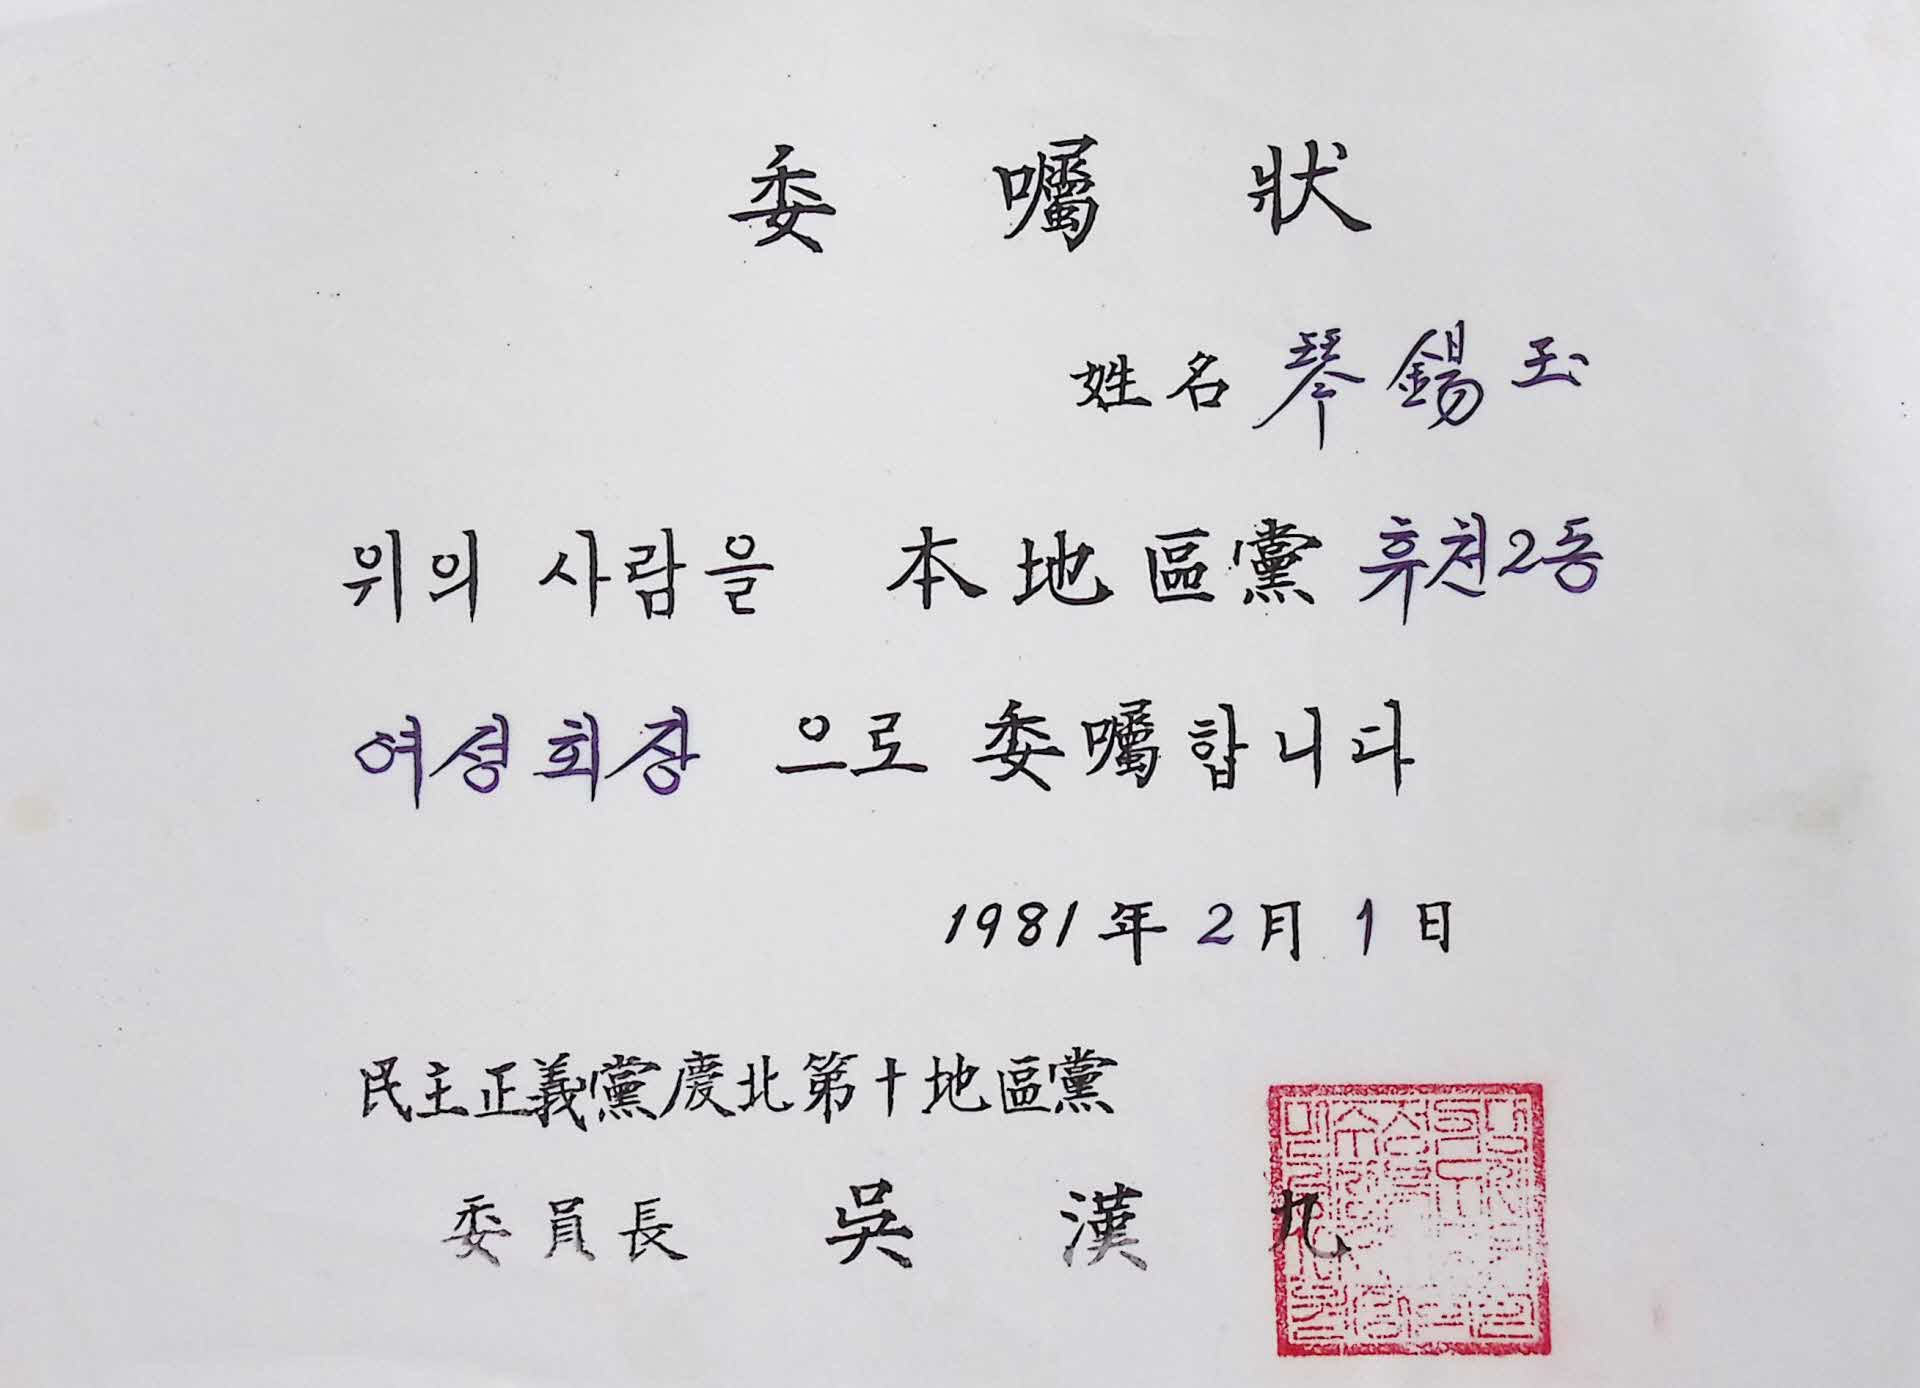 委囑狀
姓名 琴錫玉
위의 사람을 本地區黨 휴천2동
여성회장 으로 委囑합니다
1981年 2月 1日
民主正義黨慶北第十地區黨
委員長 吳漢九